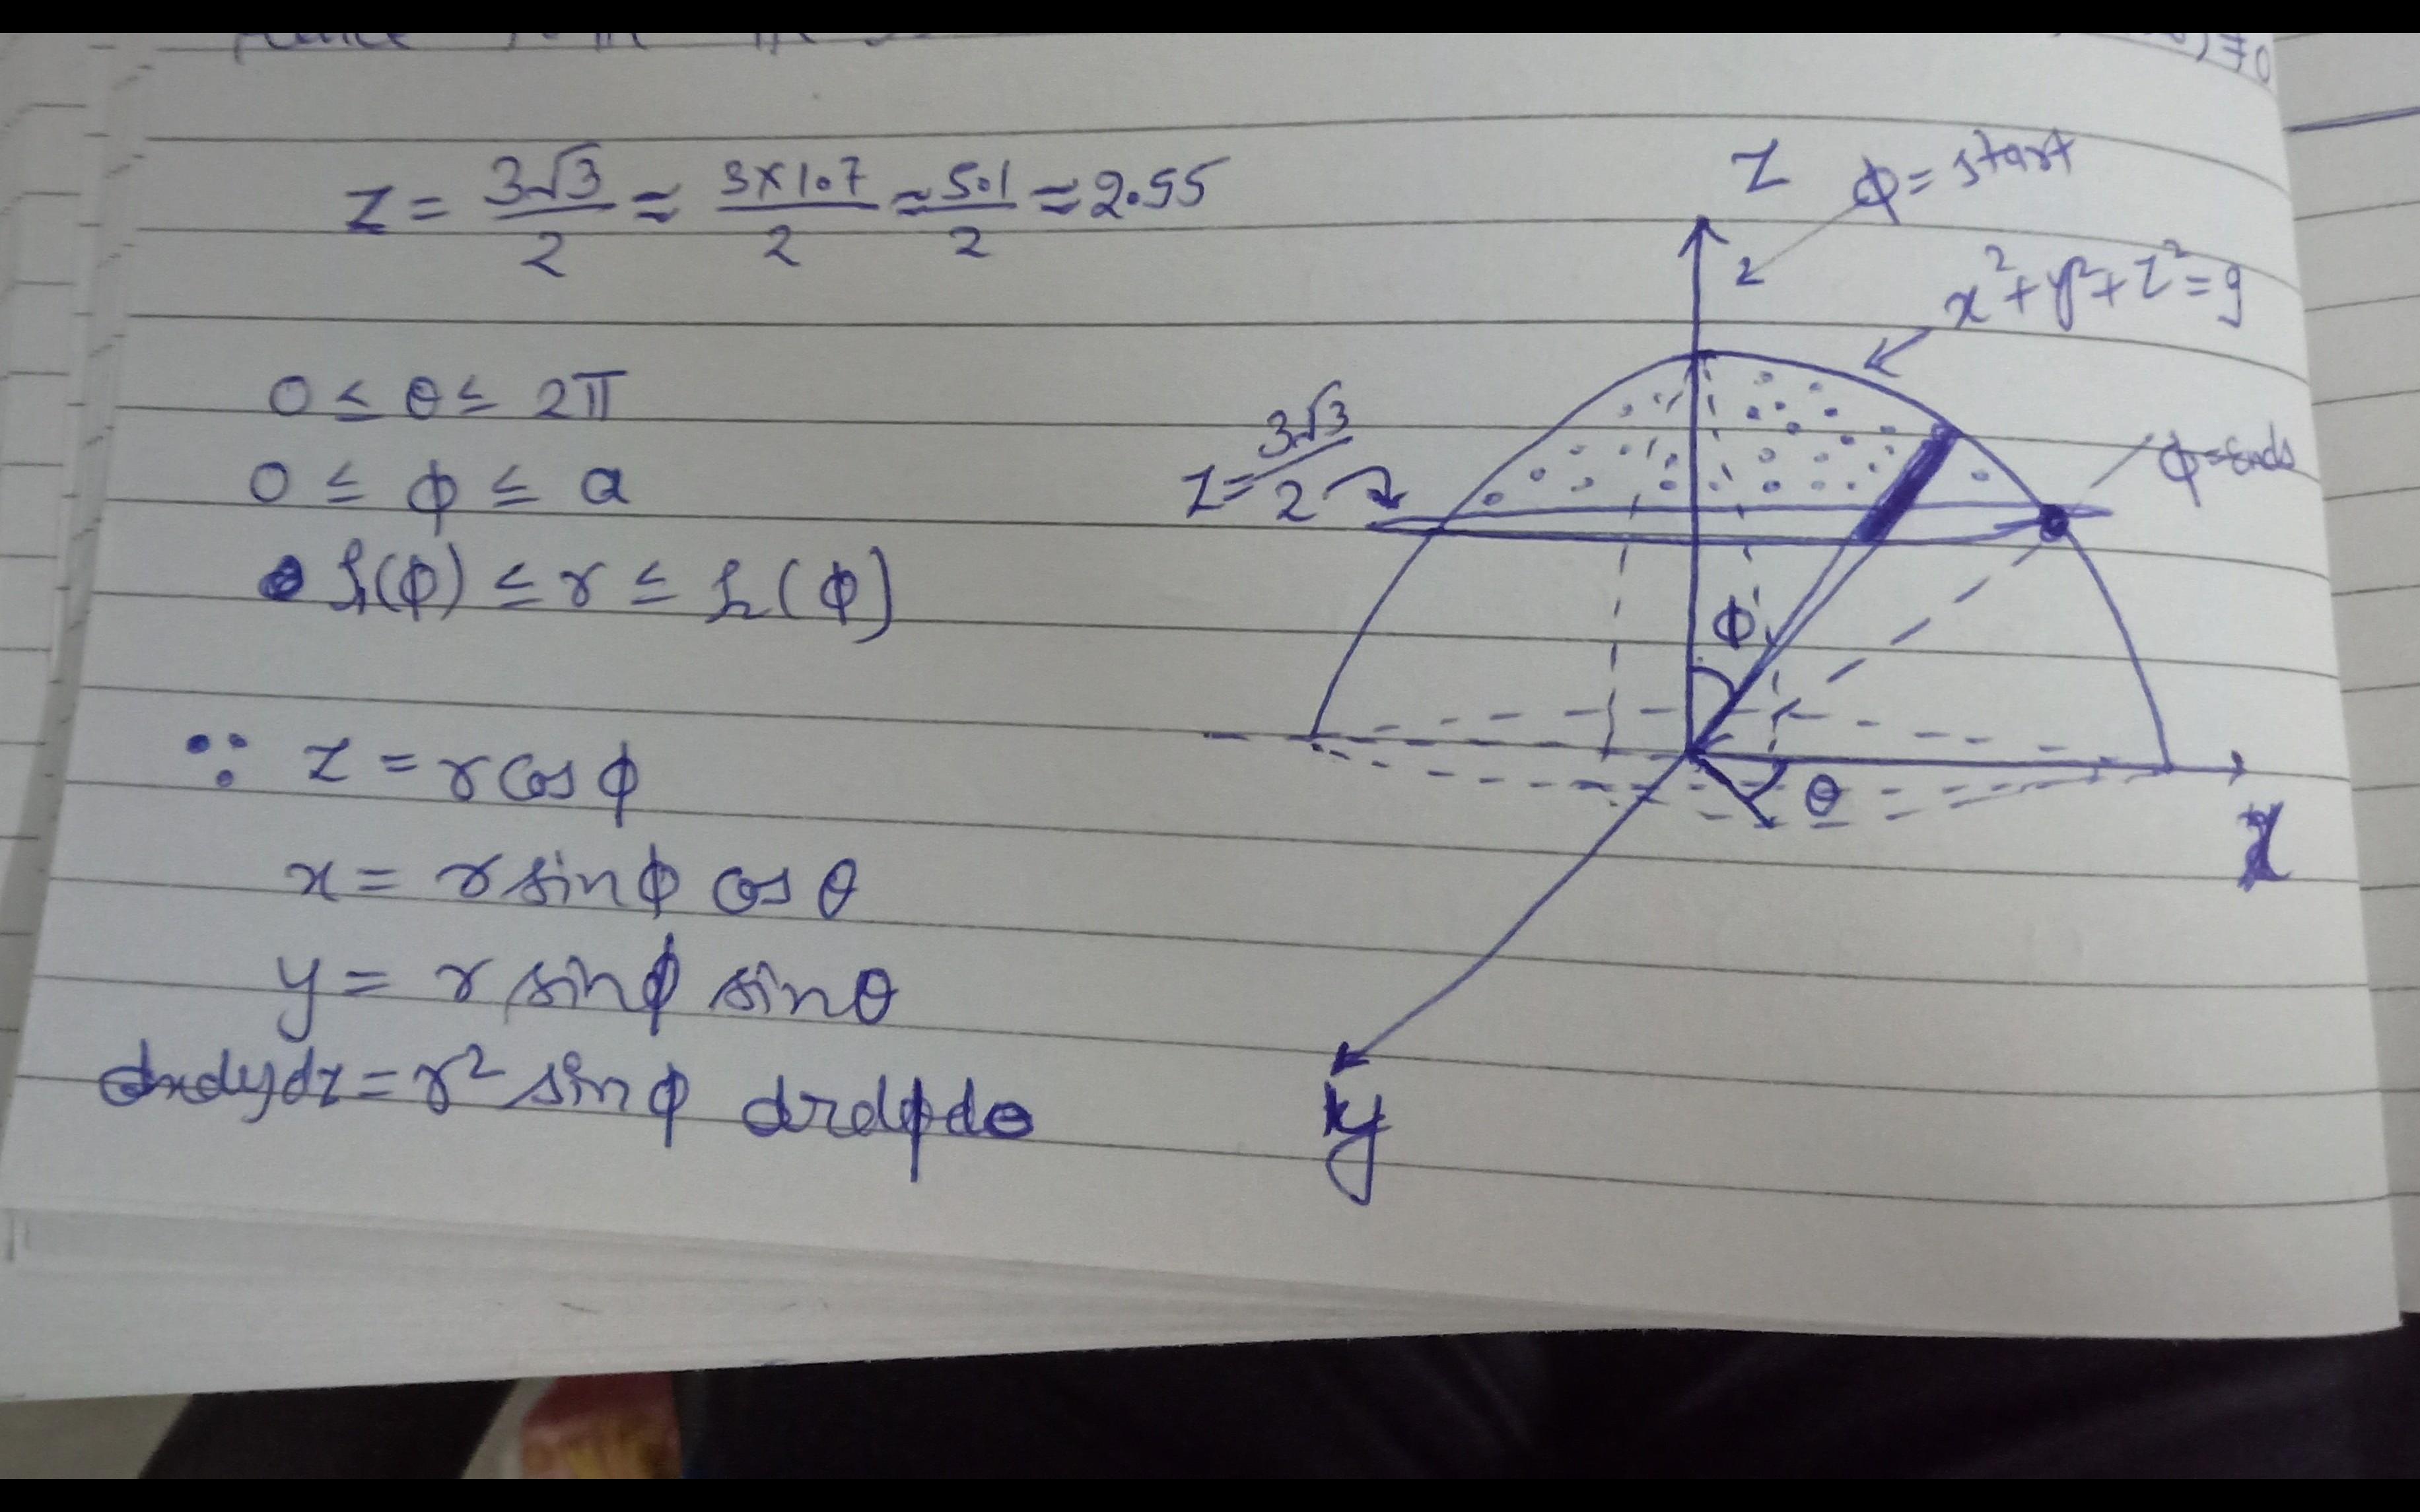 Z = 3√3/2 ≈ 3×1.7/2 ≈ 5.1/2 ≈ 2.55
0 ≤ θ ≤ 2π
0 ≤ ϕ ≤ a
f₁(ϕ) ≤ r ≤ f₂(ϕ)
∵ z = r cos ϕ
x = r sin ϕ cos θ
y = r sin ϕ sin θ
dxdydz = r² sin ϕ dr dϕ dθ
Z
ϕ = start
x² + y² + z² = 9
Z = 3√3/2
ϕ = ends
ϕ
θ
x
y